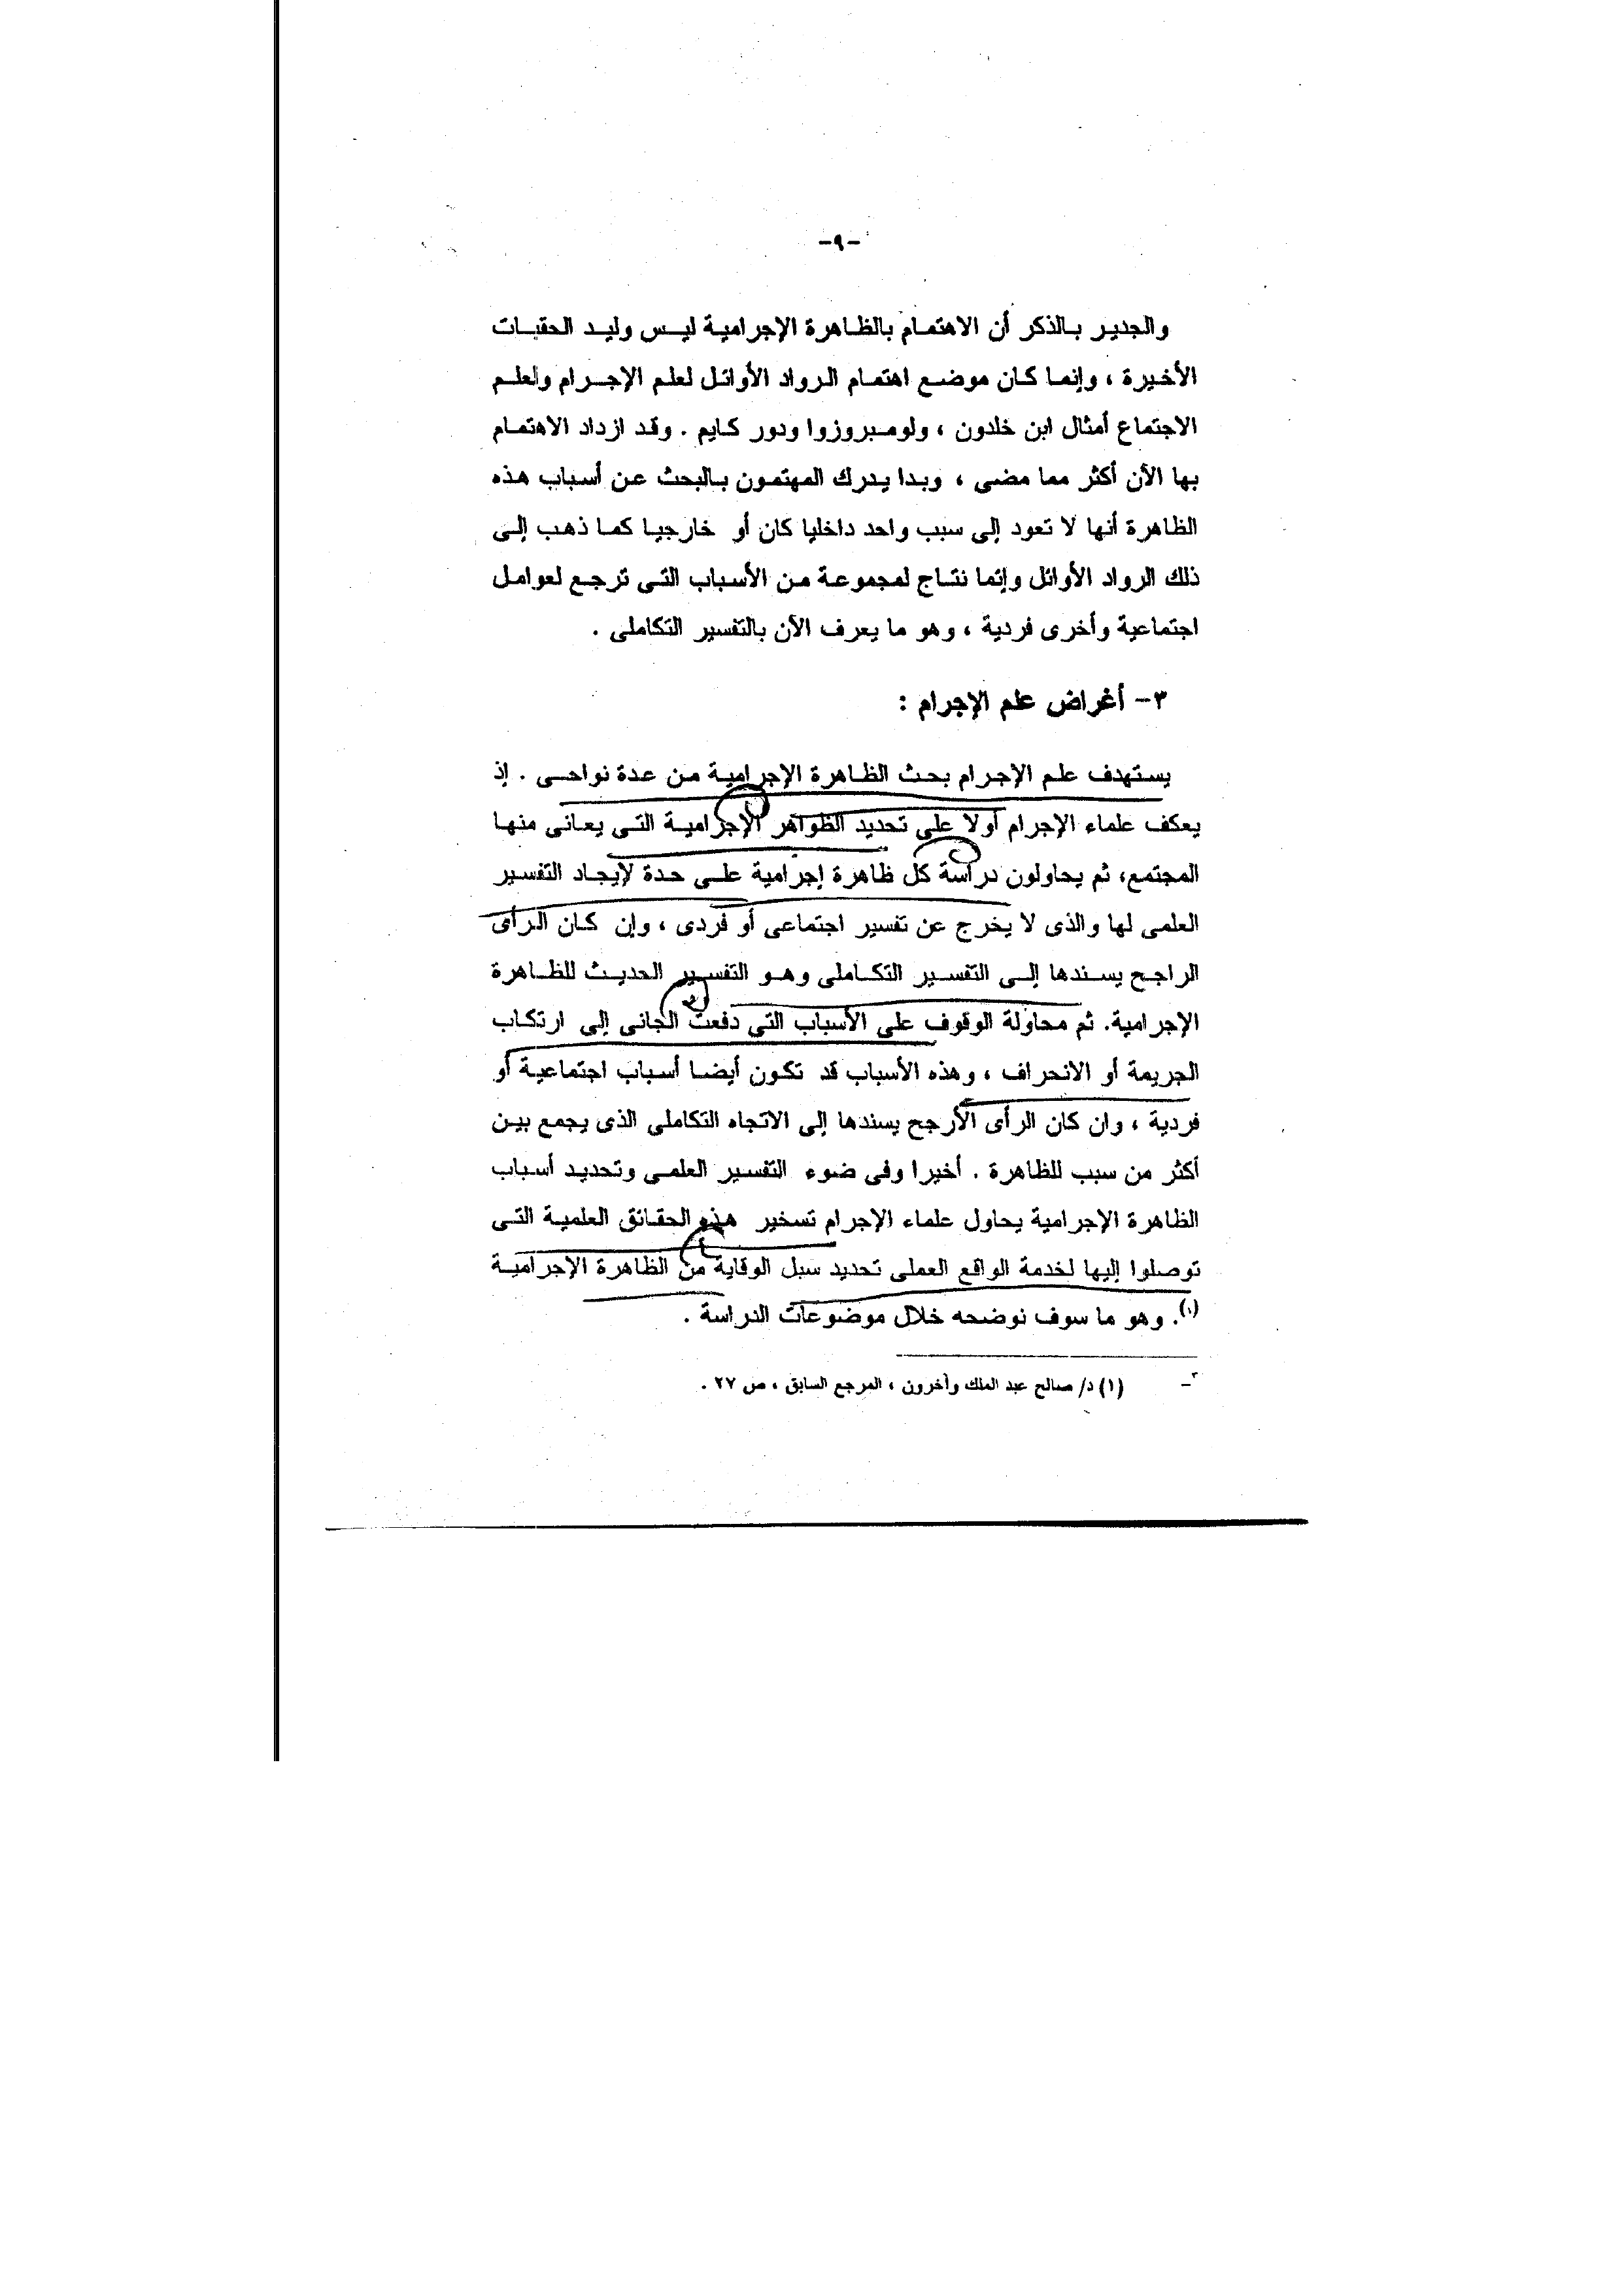 -٩-
والجدير بالذكر أن الاهتمام بالظاهرة الإجرامية ليس وليد الحقبات
الأخيرة ، وإنما كان موضع اهتمام الرواد الأوائل لعلم الإجرام ولعلم
الاجتماع أمثال ابن خلدون ، ولومبروزوا ودور كايم . وقد ازداد الاهتمام
بها الآن أكثر مما مضى ، وبدا يدرك المهتمون بالبحث عن أسباب هذه
الظاهرة أنها لا تعود إلى سبب واحد داخليا كان أو خارجيا كما ذهب إلى
ذلك الرواد الأوائل وإنما نتاج لمجموعة من الأسباب التى ترجع لعوامل
اجتماعية وأخرى فردية ، وهو ما يعرف الآن بالتفسير التكاملى .
٣- أغراض علم الإجرام :
يستهدف علم الإجرام بحث الظاهرة الإجرامية من عدة نواحى . إذ
يعكف علماء الإجرام أولا على تحديد الظواهر الإجرامية التى يعانى منها
المجتمع، ثم يحاولون دراسة كل ظاهرة إجرامية على حدة لإيجاد التفسير
العلمى لها والذى لا يخرج عن تفسير اجتماعى أو فردى ، وإن كان الرأى
الراجح يسندها إلى التفسير التكاملى وهو التفسير الحديث للظاهرة
الإجرامية. ثم محاولة الوقوف على الأسباب التى دفعت الجانى إلى ارتكاب
الجريمة أو الانحراف ، وهذه الأسباب قد تكون أيضا أسباب اجتماعية أو
فردية ، وان كان الرأى الأرجح يسندها إلى الاتجاه التكاملى الذى يجمع بين
أكثر من سبب للظاهرة . أخيرا وفى ضوء التفسير العلمى وتحديد أسباب
الظاهرة الإجرامية يحاول علماء الإجرام تسخير هذه الحقائق العلمية التى
توصلوا إليها لخدمة الواقع العملى تحديد سبل الوقاية من الظاهرة الإجرامية
(١). وهو ما سوف نوضحه خلال موضوعات الدراسة .
(١) د/ صالح عبد الملك وأخرون ، المرجع السابق ، ص ٢٧ .